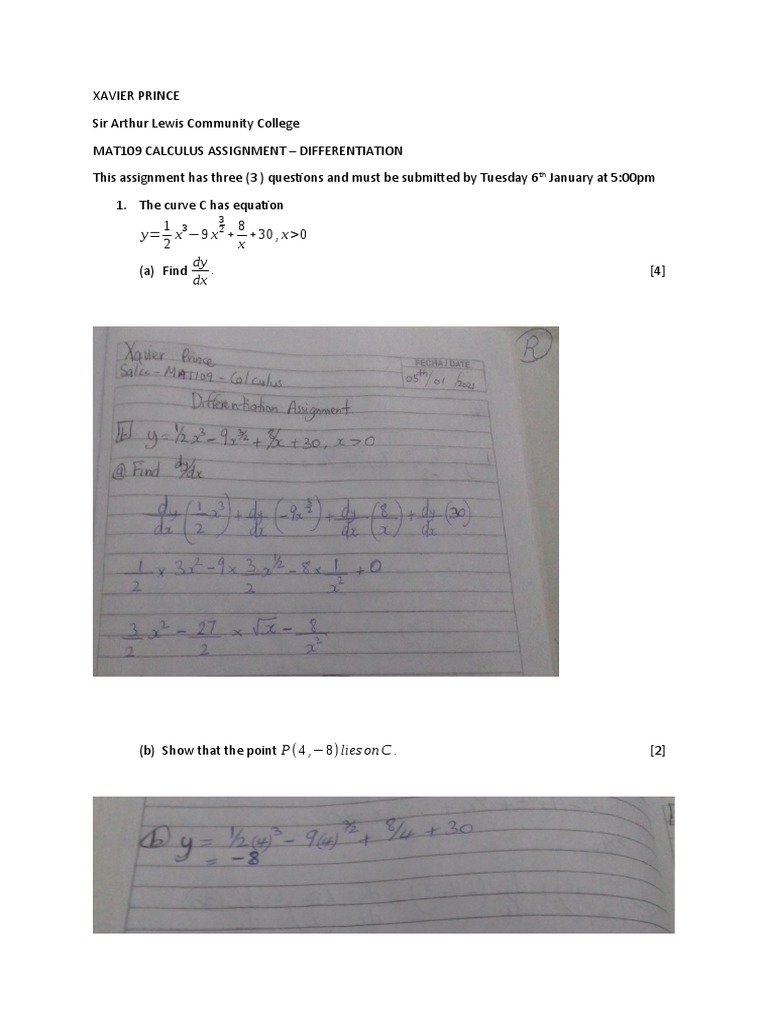 XAVIER PRINCE
Sir Arthur Lewis Community College
MAT109 CALCULUS ASSIGNMENT – DIFFERENTIATION
This assignment has three (3 ) questions and must be submitted by Tuesday 6th January at 5:00pm
1. The curve C has equation
y = 1/2 x^3 − 9 x^(3/2) + 8/x + 30 , x > 0
(a) Find dy/dx . [4]
R
Xavier Prince
FECHA / DATE
Salcc - MAT109 - Calculus 05th/01/2021
Differentiation Assignment
1. y = 1/2 x^3 - 9x^(3/2) + 8/x + 30, x > 0
a Find dy/dx
dy/dx (1/2 x^3) + dy/dx (-9x^(3/2)) + dy/dx (8/x) + dy/dx (30)
1/2 × 3x^2 - 9 × 3/2 x^(1/2) - 8 × 1/x^2 + 0
3/2 x^2 - 27/2 × √x - 8/x^2
(b) Show that the point P ( 4 , − 8 ) lies on C . [2]
b y = 1/2 (4)^3 - 9(4)^(3/2) + 8/4 + 30
= -8